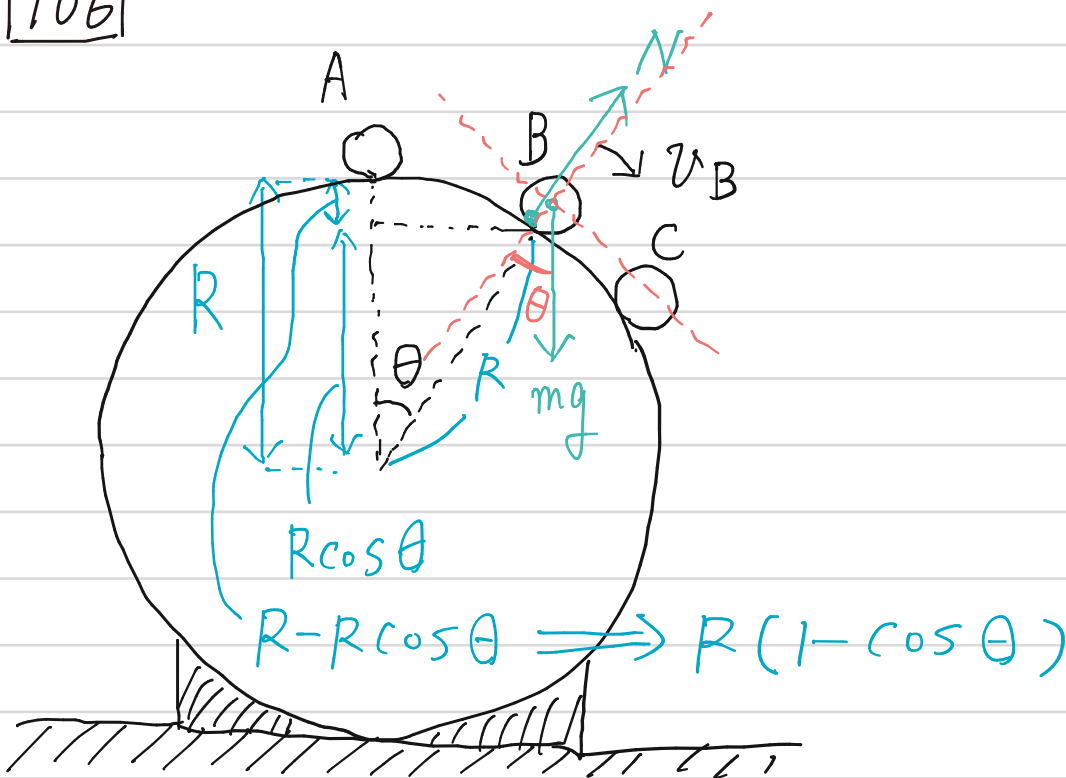 106
A
N
B
v_B
C
R
θ
θ
R
mg
Rcosθ
R-Rcosθ ⟹ R(1-cosθ)